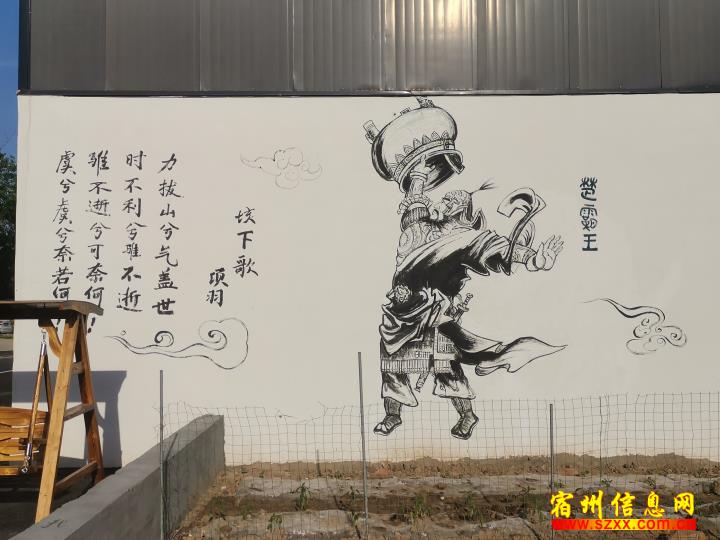 楚霸王
垓下歌
项羽
力拔山兮气盖世
时不利兮骓不逝
骓不逝兮可奈何！
虞兮虞兮奈若何！
宿州信息网
www.szxx.com.cn